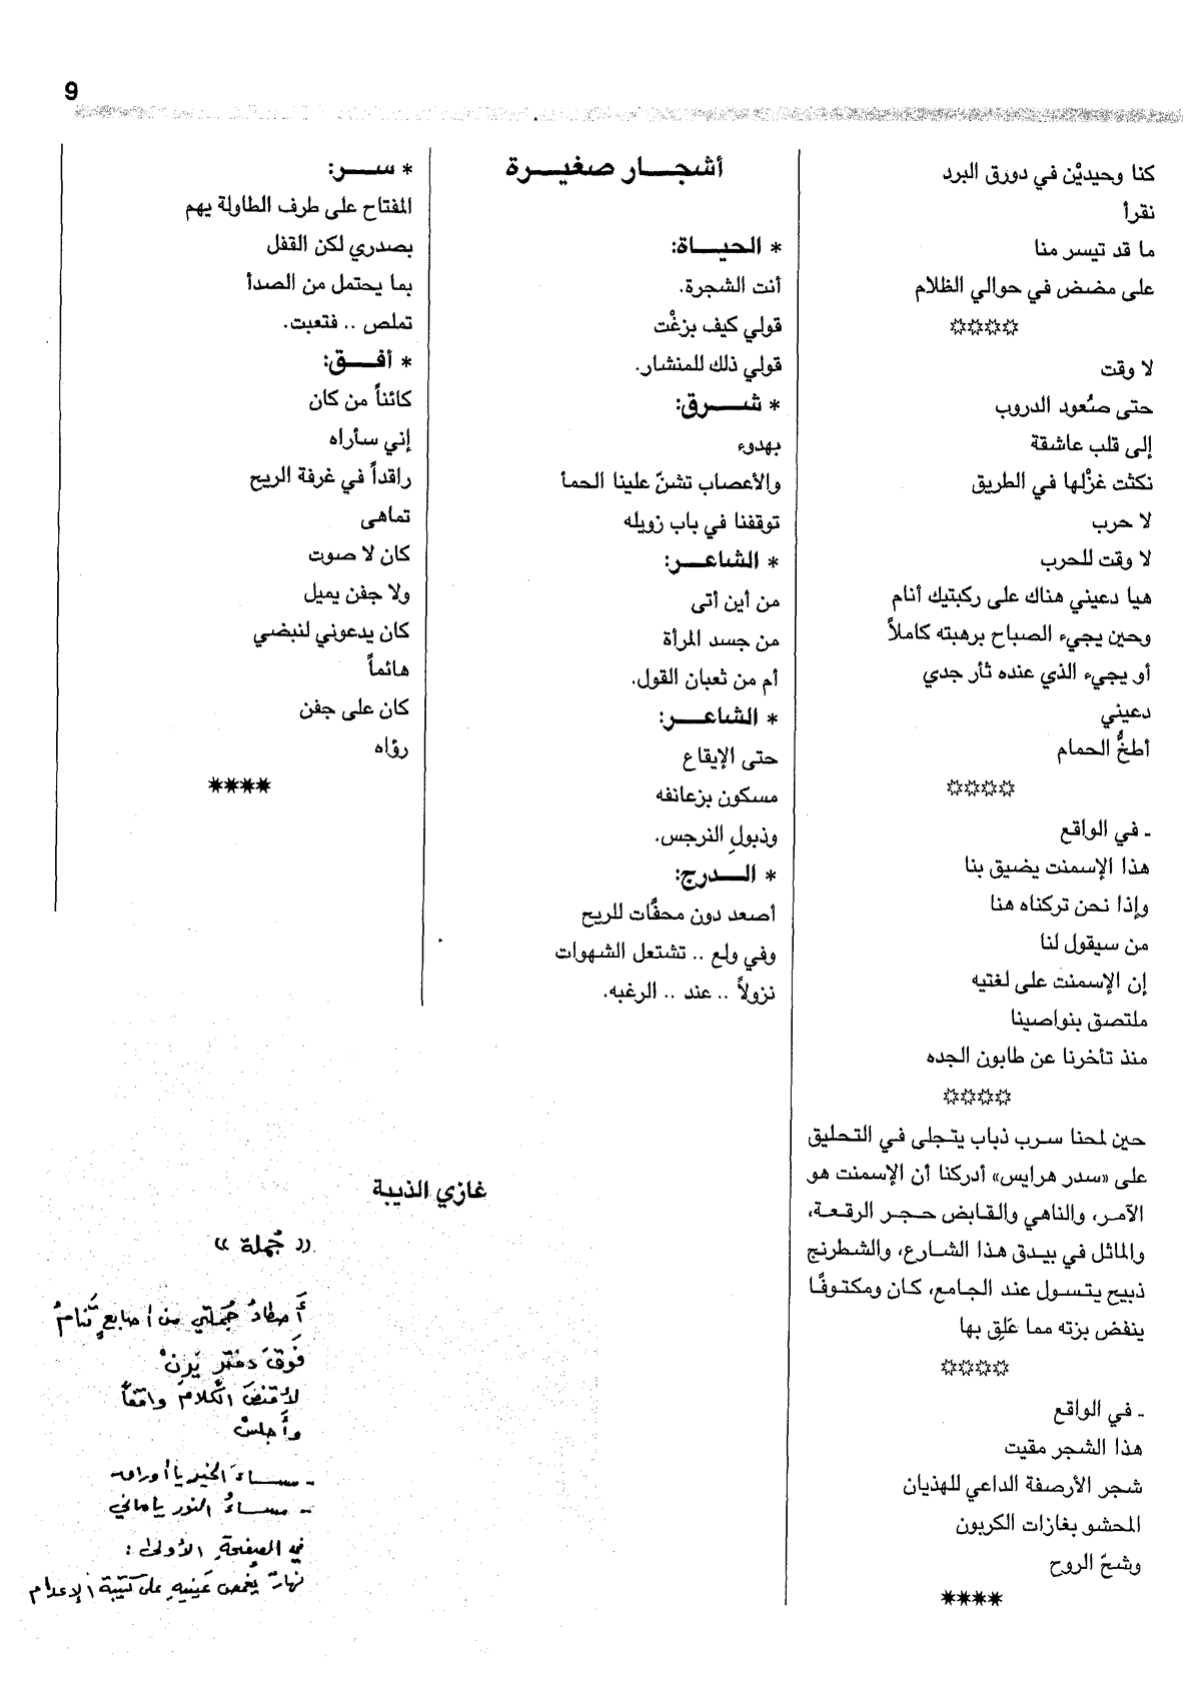 9
كنا وحيديْن في دورق البرد
نقرأ
ما قد تيسر منا
على مضض في حوالي الظلام
لا وقت
حتى صُعود الدروب
إلى قلب عاشقة
نكثت غزْلها في الطريق
لا حرب
لا وقت للحرب
هيا دعيني هناك على ركبتيك أنام
وحين يجيء الصباح برهبته كاملاً
أو يجيء الذي عنده ثأر جدي
دعيني
أطخُّ الحمام
- في الواقع
هذا الإسمنت يضيق بنا
وإذا نحن تركناه هنا
من سيقول لنا
إن الإسمنت على لغتيه
ملتصق بنواصينا
منذ تأخرنا عن طابون الجده
حين لمحنا سرب ذباب يتجلى في التحليق
على «سدر هرايس» أدركنا أن الإسمنت هو
الآمر، والناهي والقابض حجر الرقعة،
والماثل في بيدق هذا الشارع، والشطرنج
ذبيح يتسول عند الجامع، كان ومكتوفًا
ينفض بزته مما عَلِق بها
- في الواقع
هذا الشجر مقيت
شجر الأرصفة الداعي للهذيان
المحشو بغازات الكربون
وشحّ الروح
****
أشجار صغيرة
* الحياة:
أنت الشجرة.
قولي كيف بزغْت
قولي ذلك للمنشار.
* شرق:
بهدوء
والأعصاب تشنّ علينا الحمأ
توقفنا في باب زويله
* الشاعر:
من أين أتى
من جسد المرأة
أم من ثعبان القول.
* الشاعر:
حتى الإيقاع
مسكون بزعانفه
وذبولِ النرجس.
* الدرج:
أصعد دون محفَّات للريح
وفي ولع .. تشتعل الشهوات
نزولاً .. عند .. الرغبه.
* سر:
المفتاح على طرف الطاولة يهم
بصدري لكن القفل
بما يحتمل من الصدأ
تملص .. فتعبت.
* أفق:
كائناً من كان
إني سأراه
راقداً في غرفة الريح
تماهى
كان لا صوت
ولا جفن يميل
كان يدعوني لنبضي
هائماً
كان على جفن
رؤاه
****
غازي الذيبة
« جُملة »
أَصطادُ جُملتي من أصابعٍ تَنامُ
فَوقَ دفترٍ يَرِنّْ
لأقنصَ الكَلامَ واقفاً
وأَجلسْ
- مساءَ الخير يا أوراق
- مساءُ النور يا
في الصفحةِ الأولى :
نهارٌ يُغمض عَينيهِ على كتيبة الإعدام